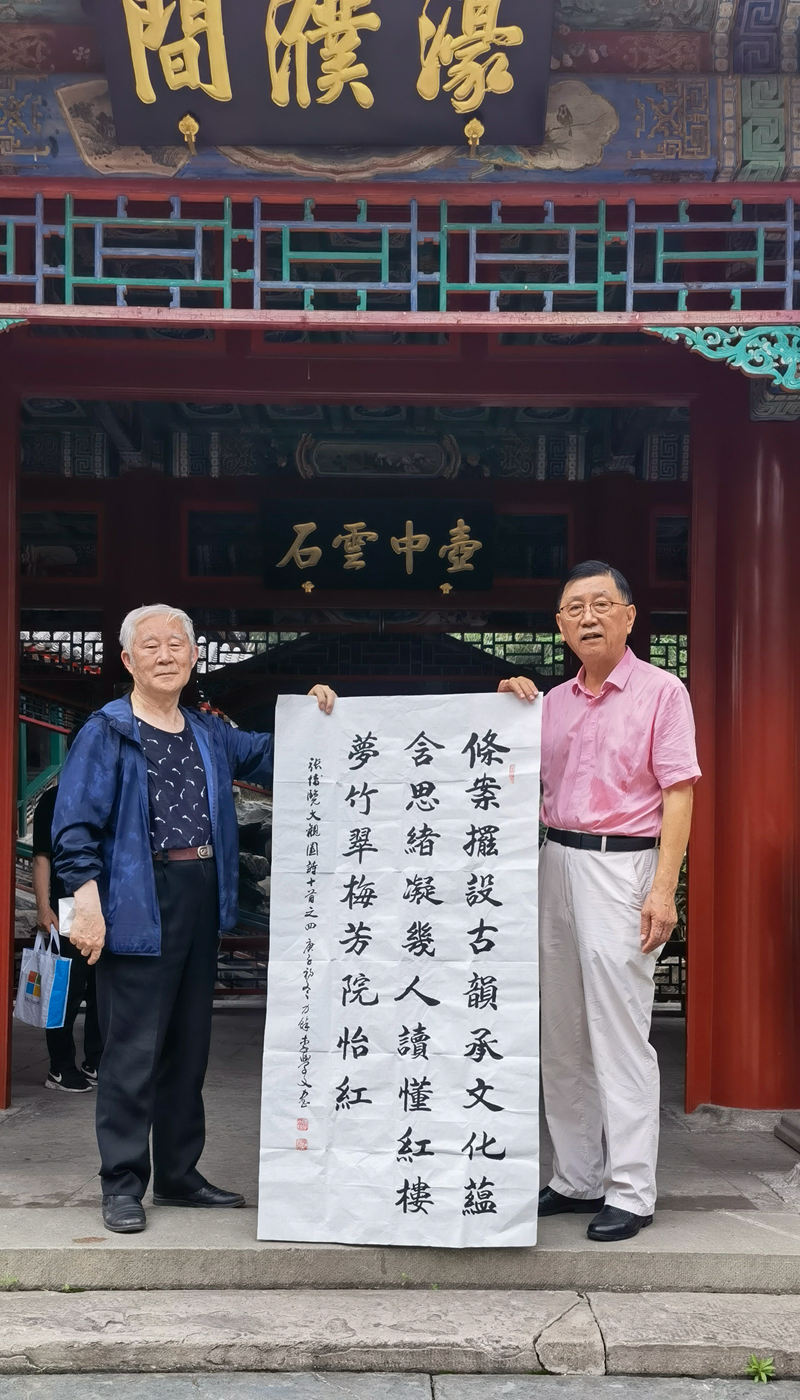 濠濮間
壺中雲石
條案擺設古韻承文化蘊
含思緒凝幾人讀懂紅樓
夢竹翠梅芳院怡紅
大觀園詩十首之四 庚子初冬 李學文書